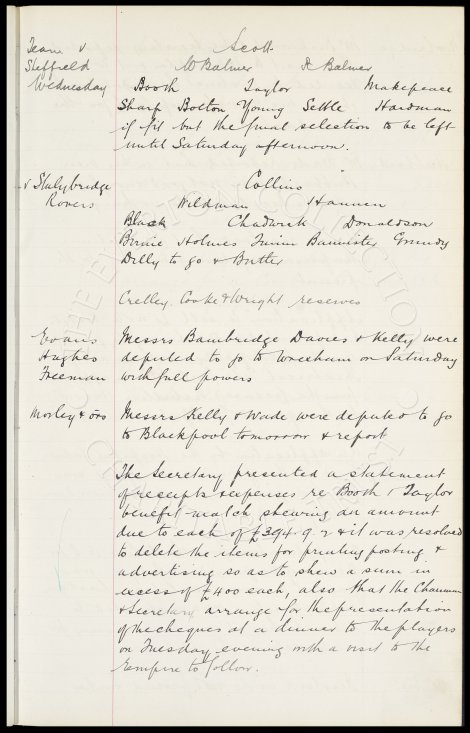 Team v Scott
Sheffield W Balmer R Balmer
Wednesday Booth Taylor Makepeace
Sharp Bolton Young Settle Hardman
if fit but the final selection to be left
until Saturday afternoon.
v Stalybridge Collins
Rovers Wildman Hannen
Black Chadwick Donaldson
Birnie Holmes Bannister Grundy
Dilly to go & Butler
Crelley, Cooke & Wright reserves
Evans Messrs Bambridge Davies & Kelly were
Hughes deputed to go to Wrexham on Saturday
Freeman with full powers
Morley & ors Messrs Kelly & Wade were deputed to go
to Blackpool tomorrow & report
The Secretary presented a statement
of receipts & expenses re Booth & Taylor
benefit match shewing an amount
due to each of £394. 9. 2 & it was resolved
to delete the items for printing posting &
advertising so as to shew a sum in
excess of £400 each, also that the Chairman
& Secretary arrange for the presentation
of the cheques at a dinner to the players
on Tuesday evening with a visit to the
Empire to follow.